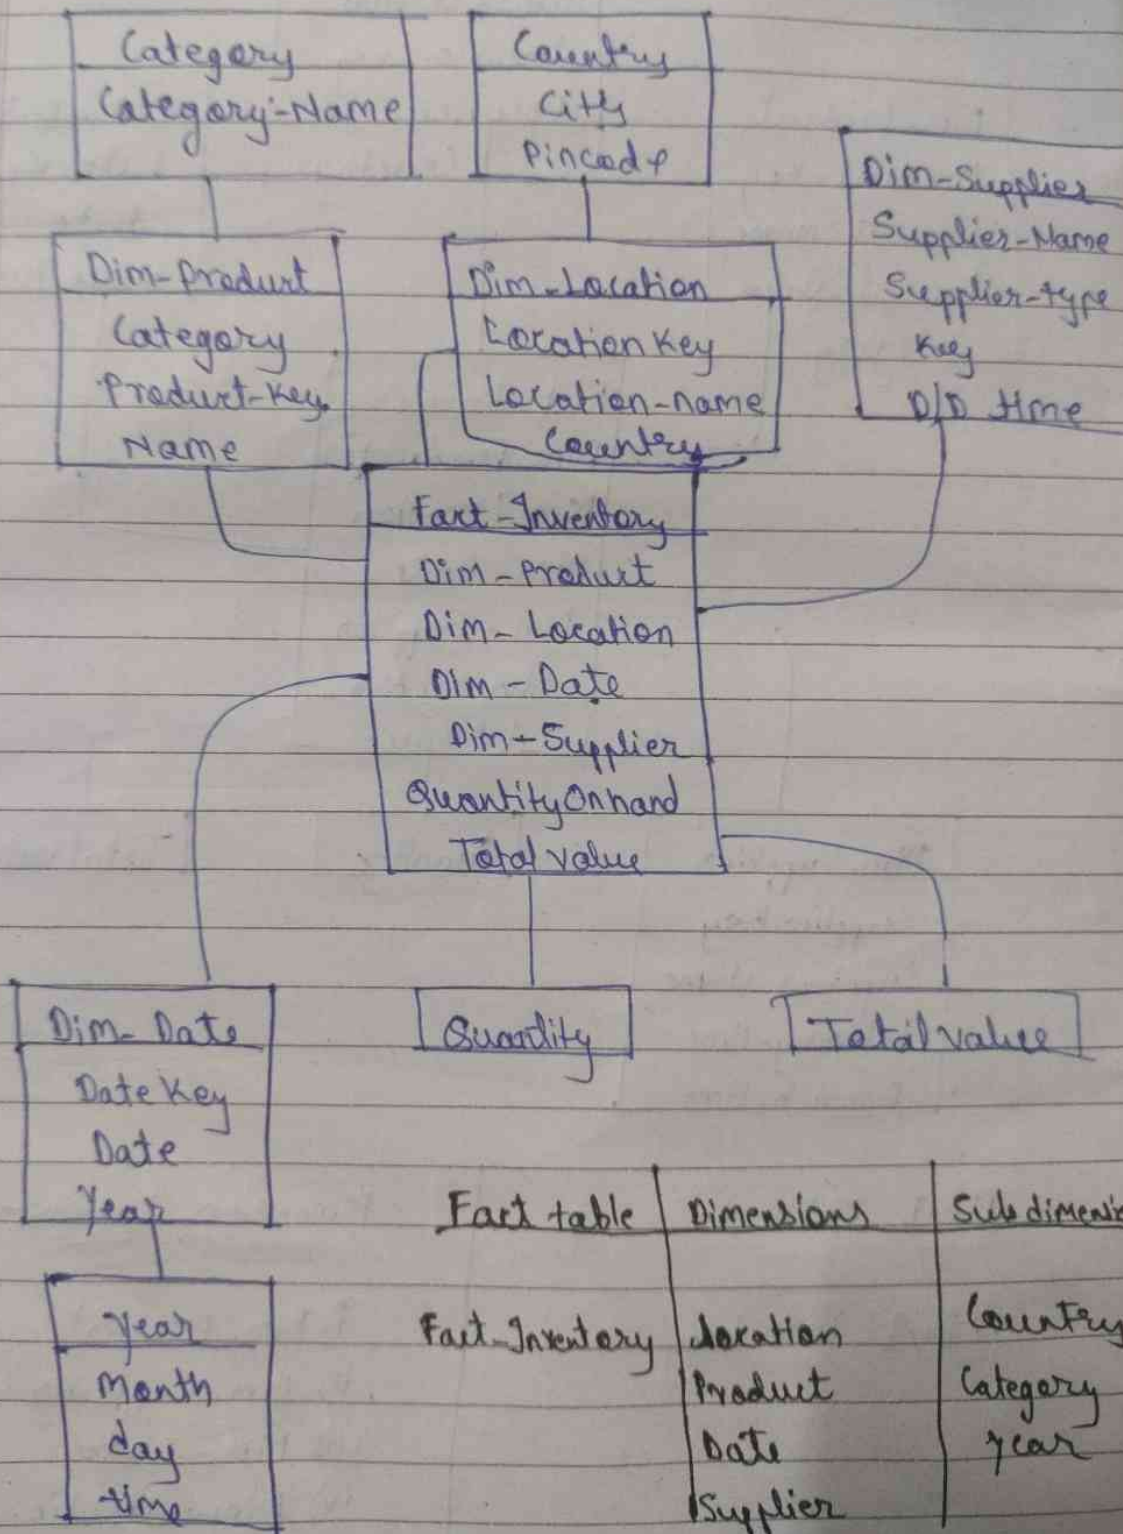 Category
Category-Name
Country
City
Pincode
Dim-Supplier
Supplier-Name
Supplier-type
Key
D/D time
Dim-Product
Category
Product-Key
Name
Dim-Location
Location Key
Location-name
Country
Fact-Inventory
Dim-Product
Dim-Location
Dim-Date
Dim-Supplier
QuantityOnhand
Total value
Dim-Date
Date Key
Date
Year
Quantity
Total value
Year
Month
day
time
Fact table Dimensions Subdimensi
Fact-Inventory Location Country
Product Category
Date year
Supplier